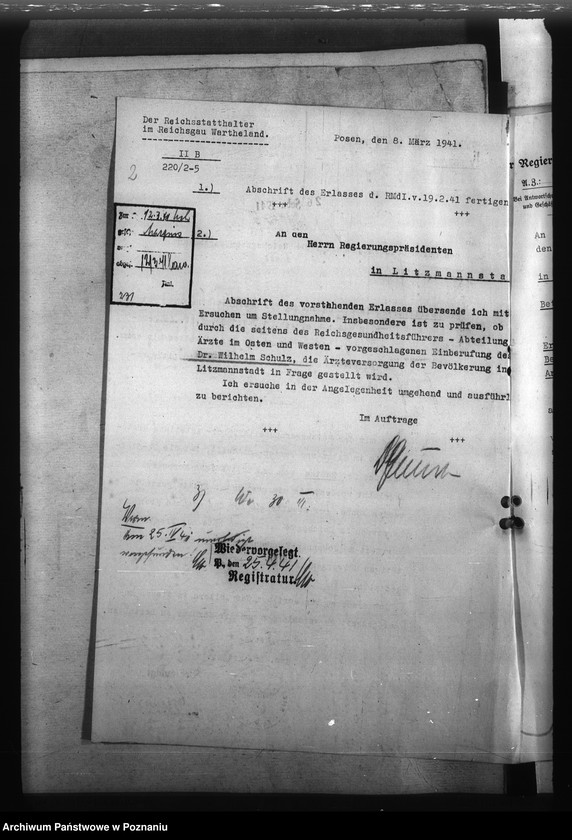 Der Reichsstatthalter
im Reichsgau Wartheland.
Posen, den 8. März 1941.
II B
220/2-5
2
1.) Abschrift des Erlasses d. RMdI.v.19.2.41 fertigen
+++ +++
2.) An den
Herrn Regierungspräsidenten
in Litzmannsta
Abschrift des vorstehenden Erlasses übersende ich mit
Ersuchen um Stellungnahme. Insbesondere ist zu prüfen, ob
durch die seitens des Reichsgesundheitsführers - Abteilung
Ärzte im Osten und Westen - vorgeschlagenen Einberufung de
Dr. Wilhelm Schulz, die Ärzteversorgung der Bevölkerung in
Litzmannstadt in Frage gestellt wird.
Ich ersuche in der Angelegenheit umgehend und ausführl
zu berichten.
Im Auftrage
+++ +++
3)
Wiedervorgelegt.
P., den 25.4.41
Registratur.
r Regier
A.3.:
Bei Antwortsch
und Geschä
An
den
in
Be
Er
Be
Archiwum Państwowe w Poznaniu